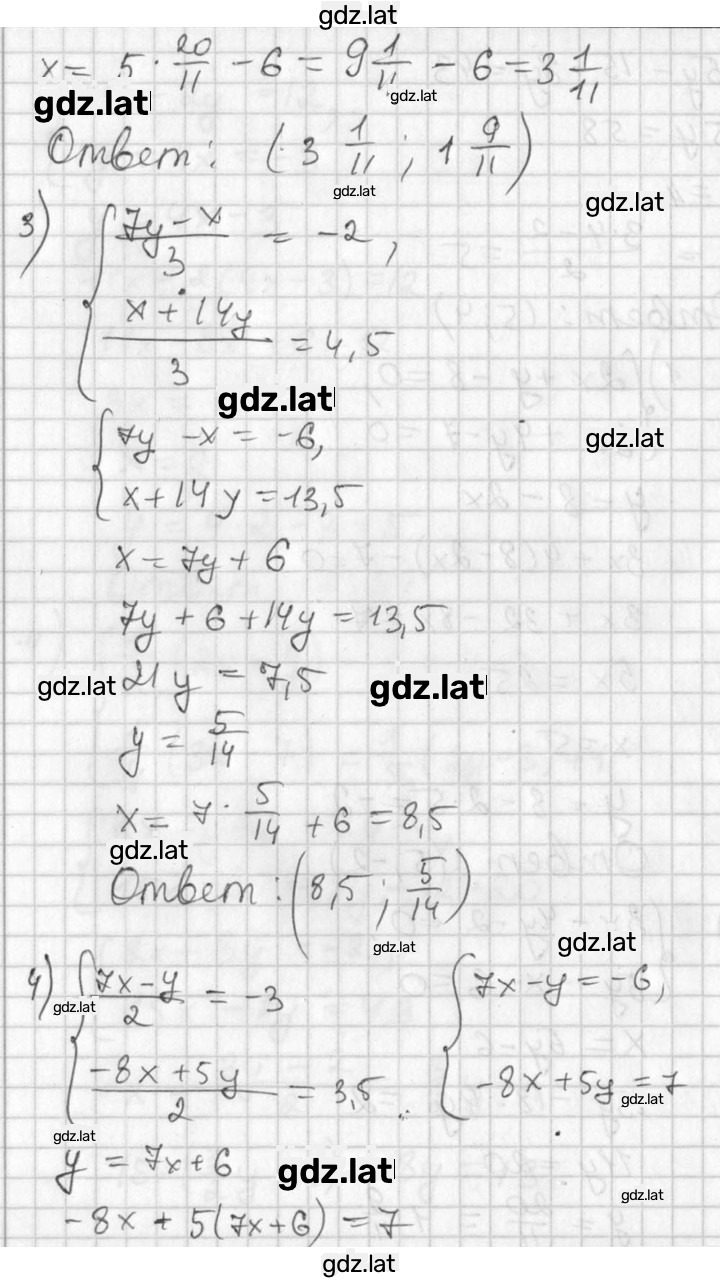 gdz.lat
x = 5 · 20/11 - 6 = 9 1/11 - 6 = 3 1/11
gdz.lat
gdz.lat
Ответ: (3 1/11 ; 1 9/11)
gdz.lat
gdz.lat
3) { (7y - x)/3 = -2,
(x + 14y)/3 = 4,5
gdz.lat
{ 7y - x = -6,
gdz.lat
x + 14y = 13,5
x = 7y + 6
7y + 6 + 14y = 13,5
gdz.lat 21y = 7,5 gdz.lat
y = 5/14
x = 7 · 5/14 + 6 = 8,5
gdz.lat
Ответ: (8,5 ; 5/14)
gdz.lat
gdz.lat
4) { (7x - y)/2 = -3 { 7x - y = -6,
gdz.lat
(-8x + 5y)/2 = 3,5 -8x + 5y = 7
gdz.lat
gdz.lat
y = 7x + 6 gdz.lat
gdz.lat
-8x + 5(7x + 6) = 7
gdz.lat